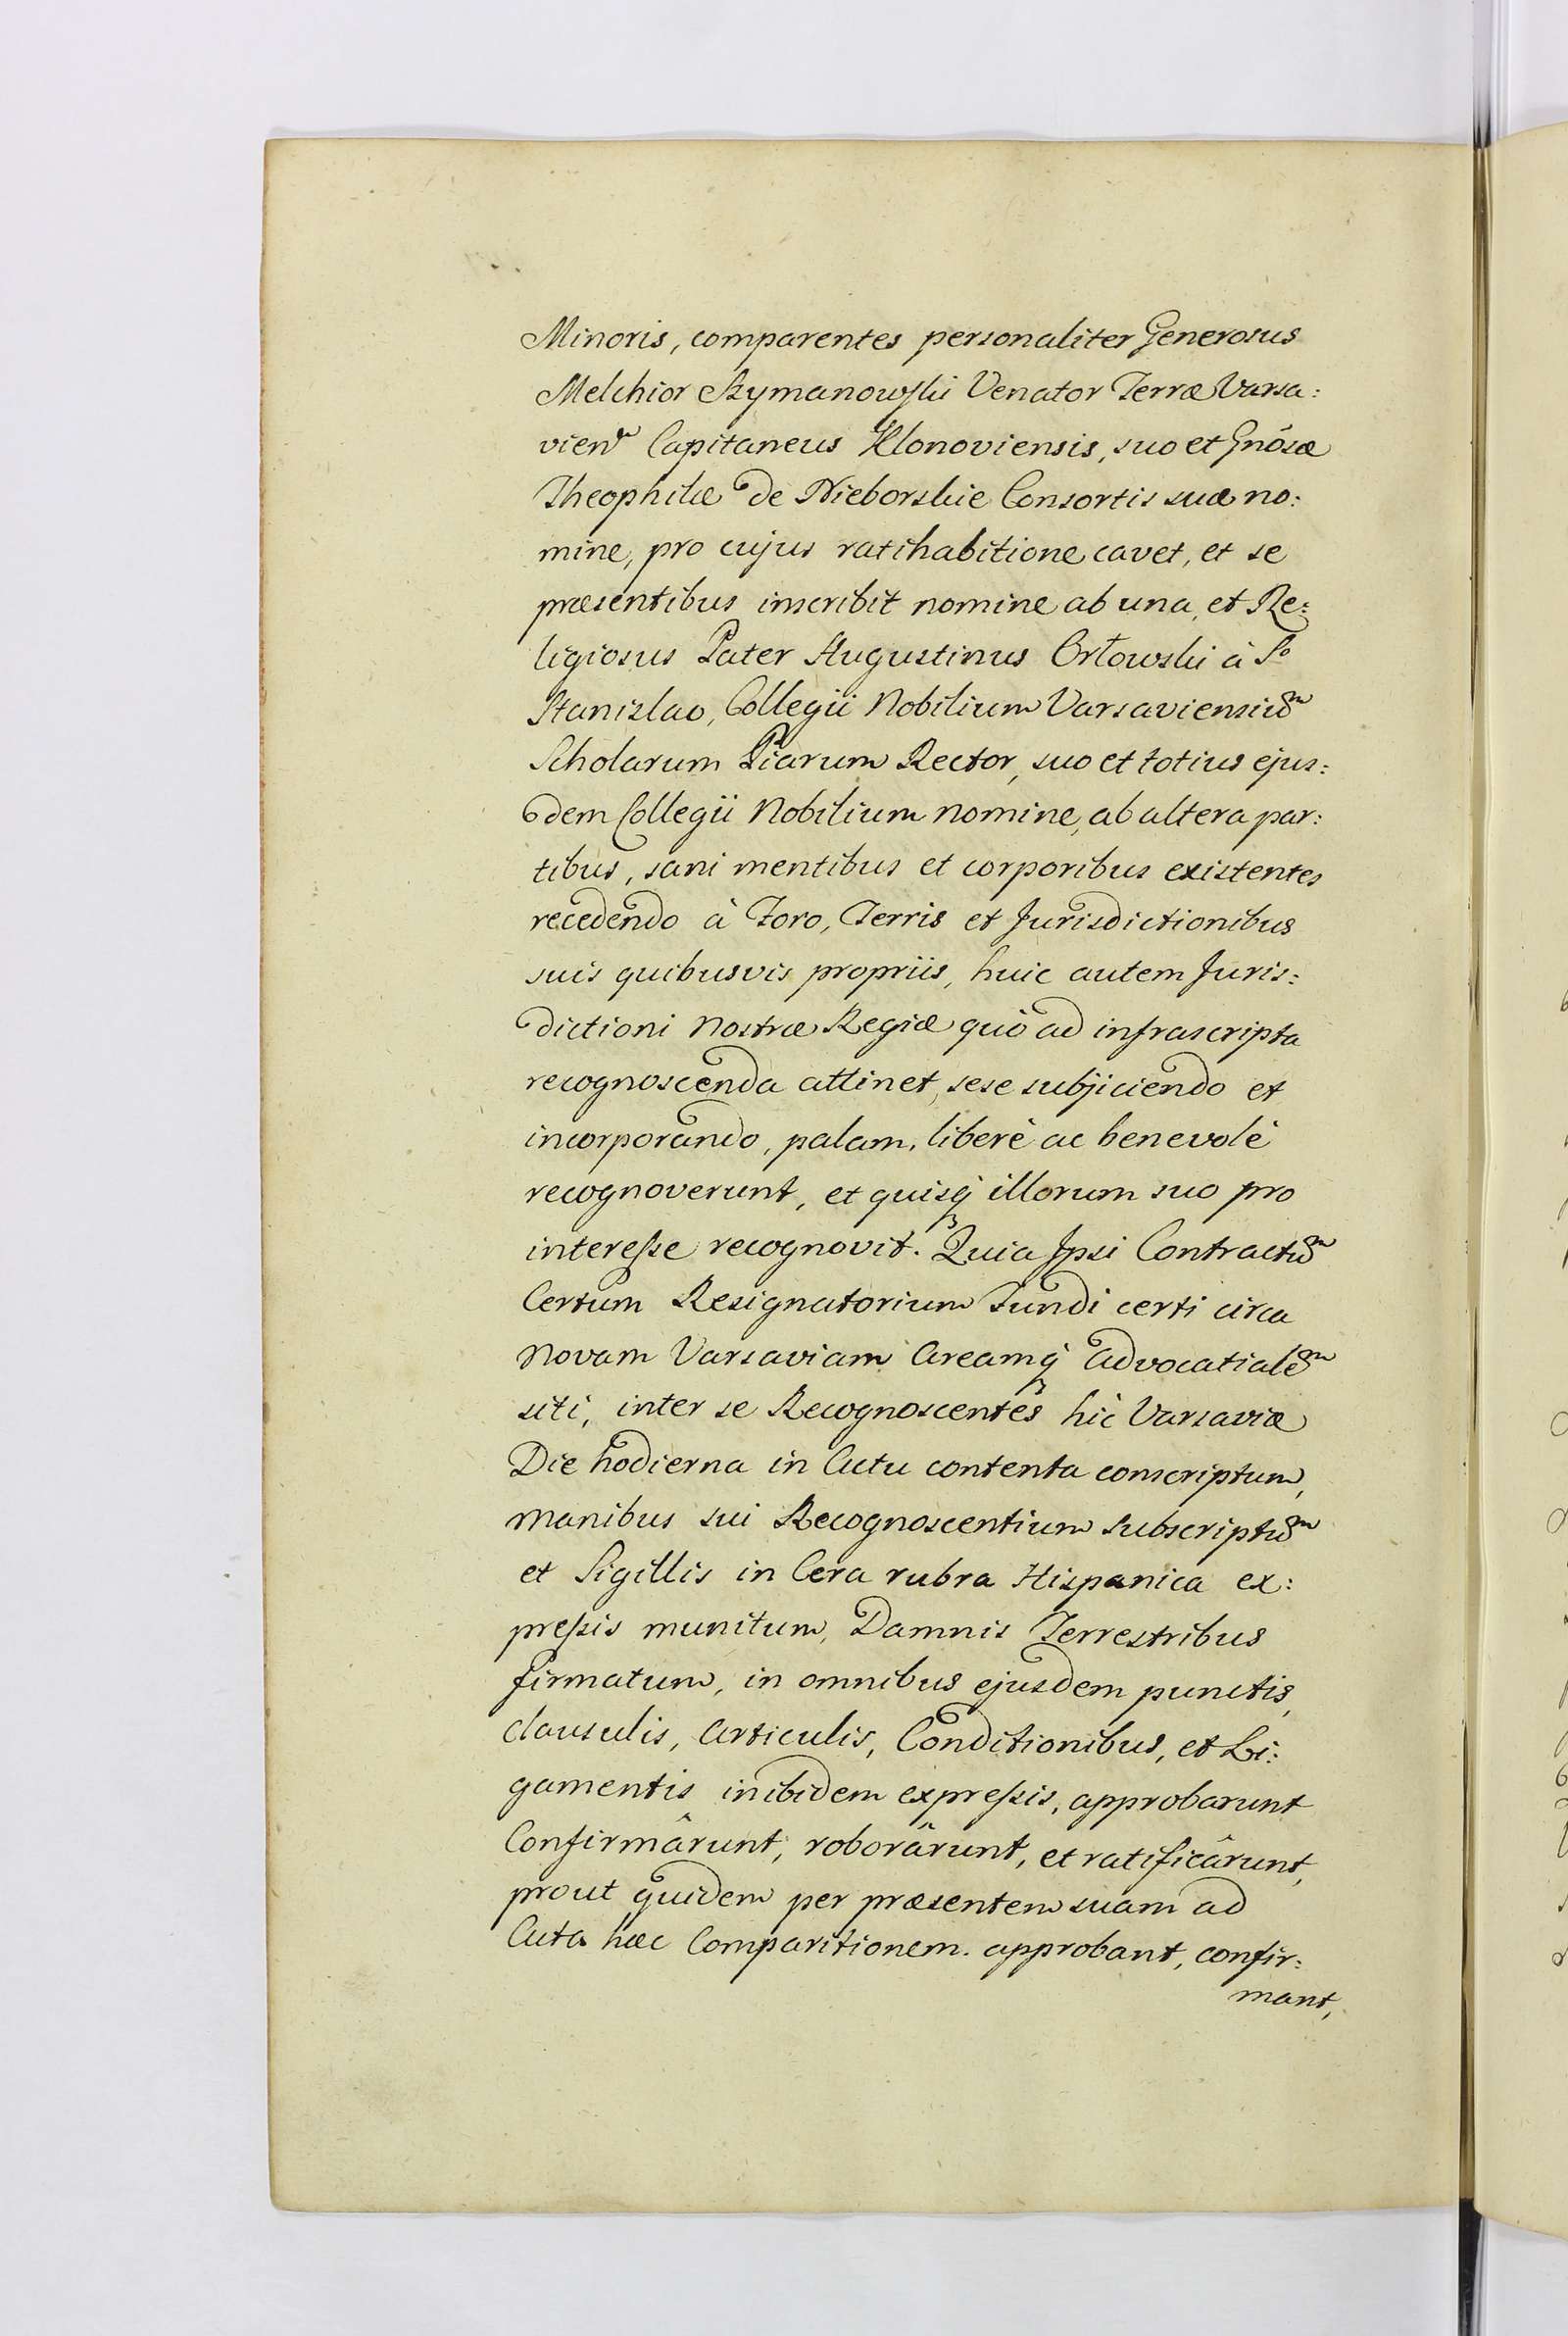 Minoris, comparentes personaliter Generosus
Melchior Szymanowski Venator Terræ Varsa:
vien̄ Capitaneus Klonoviensis, suo et Gnôsæ
Theophilæ de Nieborskie Consortis suæ no:
mine, pro cujus ratihabitione cavet, et se
præsentibus inscribit nomine ab una, et Re:
ligiosus Pater Augustinus Orłowski à Sº
Stanislao, Collegii Nobilium Varsaviensiuᵐ
Scholarum Piarum Rector, suo et totius ejus:
dem Collegii Nobilium nomine, ab altera par:
tibus, sani mentibus et corporibus existentes
recedendo à Foro, Terris et Jurisdictionibus
suis quibusvis propriis, huic autem Juris:
dictioni Nostræ Regiæ quò ad infrascripta
recognoscenda attinet, sese subjiciendo et
incorporando, palam, liberè ac benevolè
recognoverunt, et quisq̃ illorum suo pro
interesse recognovit. Quia Ipsi Contractuᵐ
Certum Resignatorium Fundi certi circa
Novam Varsaviam Areamq̃ Advocatialeᵐ
siti, inter se Recognoscentes hìc Varsaviæ
Die hodierna in Actu contenta conscriptum,
manibus sui Recognoscentium subscriptuᵐ
et Sigillis in Cera rubra Hispanica ex:
pressis munitum, Damnis Terrestribus
firmatum, in omnibus ejusdem punctis,
clausulis, Articulis, Conditionibus, et Li:
gamentis inibidem expressis, approbarunt
Confirmârunt, roborârunt, et ratificârunt,
prout quidem per præsentem suam ad
Acta hæc Comparitionem. approbant, confir:
mant,